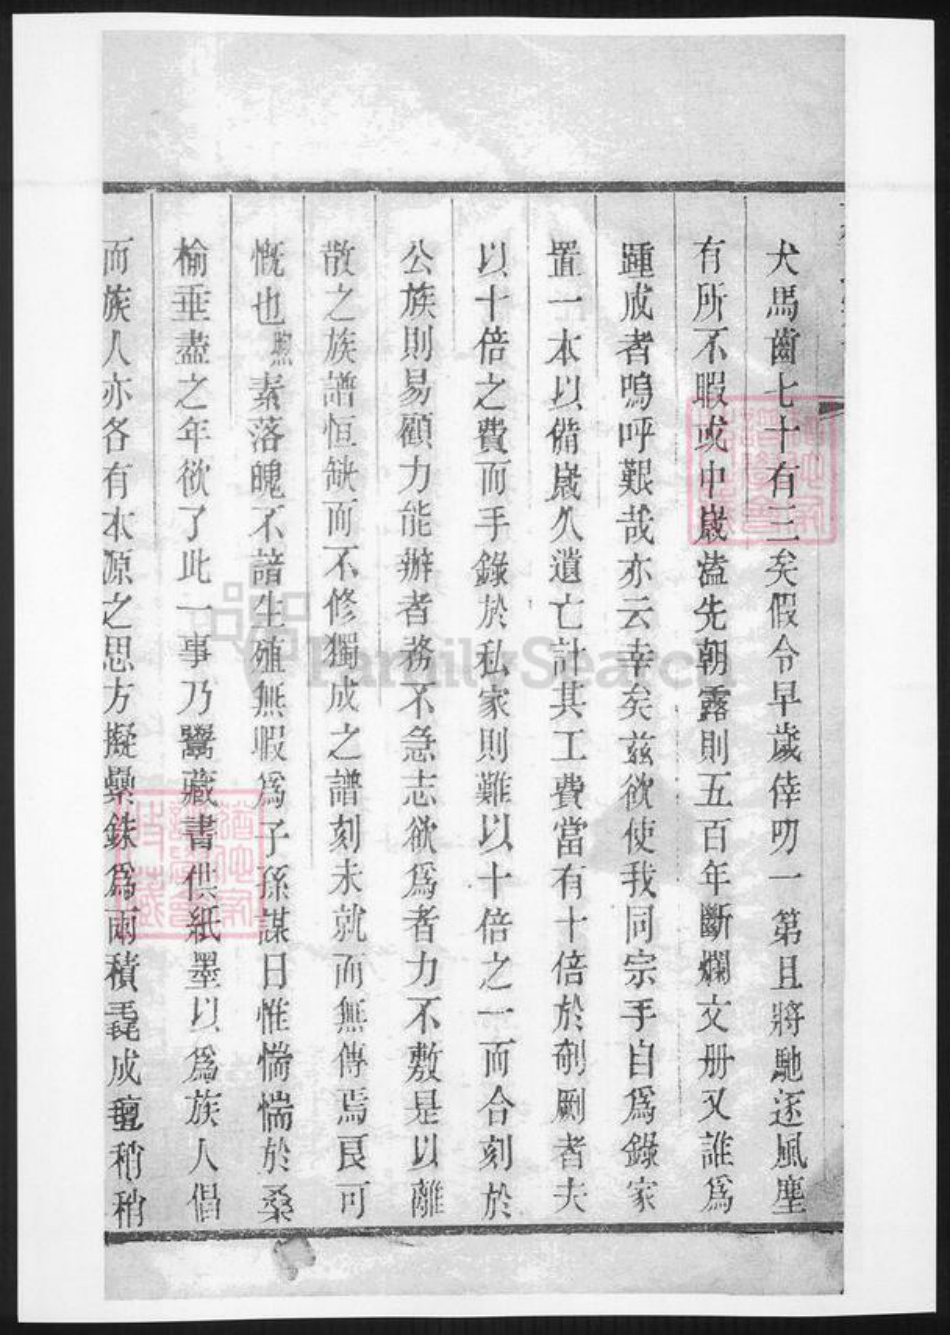 犬馬齒七十有三矣假令早歲倖叨一第且將馳逐風塵
有所不暇或中歲溘先朝露則五百年斷爛文册又誰爲
踵成者嗚呼艱哉亦云幸矣兹欲使我同宗手自爲錄家
置一本以備歲久遺亡計其工費當有十倍於剞劂者夫
以十倍之費而手錄於私家則難以十倍之一而合刻於
公族則易顧力能辦者務不急志欲爲者力不敷是以離
散之族譜恒缺而不修獨成之譜刻未就而無傳焉良可
慨也 素落魄不諳生殖無暇爲子孫謀日惟惴惴於桑
榆垂盡之年欲了此一事乃鬻藏書供紙墨以爲族人倡
而族人亦各有本源之思方擬纍銖爲兩積毳成氊稍稍
FamilySearch